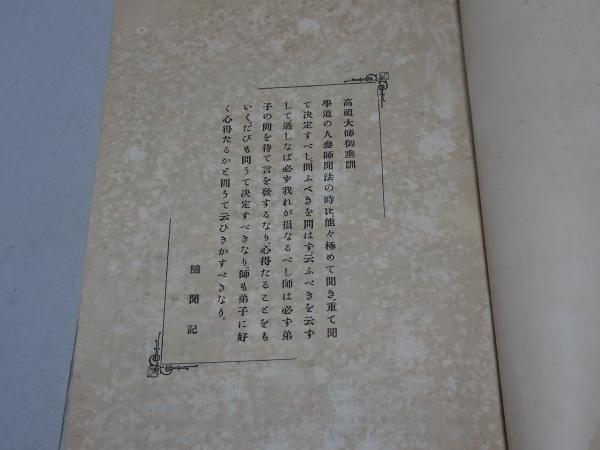 高祖大師御垂訓
學道の人參師聞法の時に能々極めて聞き、重て聞
て決定すべし、問ふべきを問はず、云ふべきを云ず
して、過しなば必ず我れが損なるべし、師は必ず弟
子の問を待て言を發するなり、心得たることをも
いくたびも問うて決定すべきなり、師も弟子に好
く心得たるかと問うて云ひきかすべきなり。
隨聞記